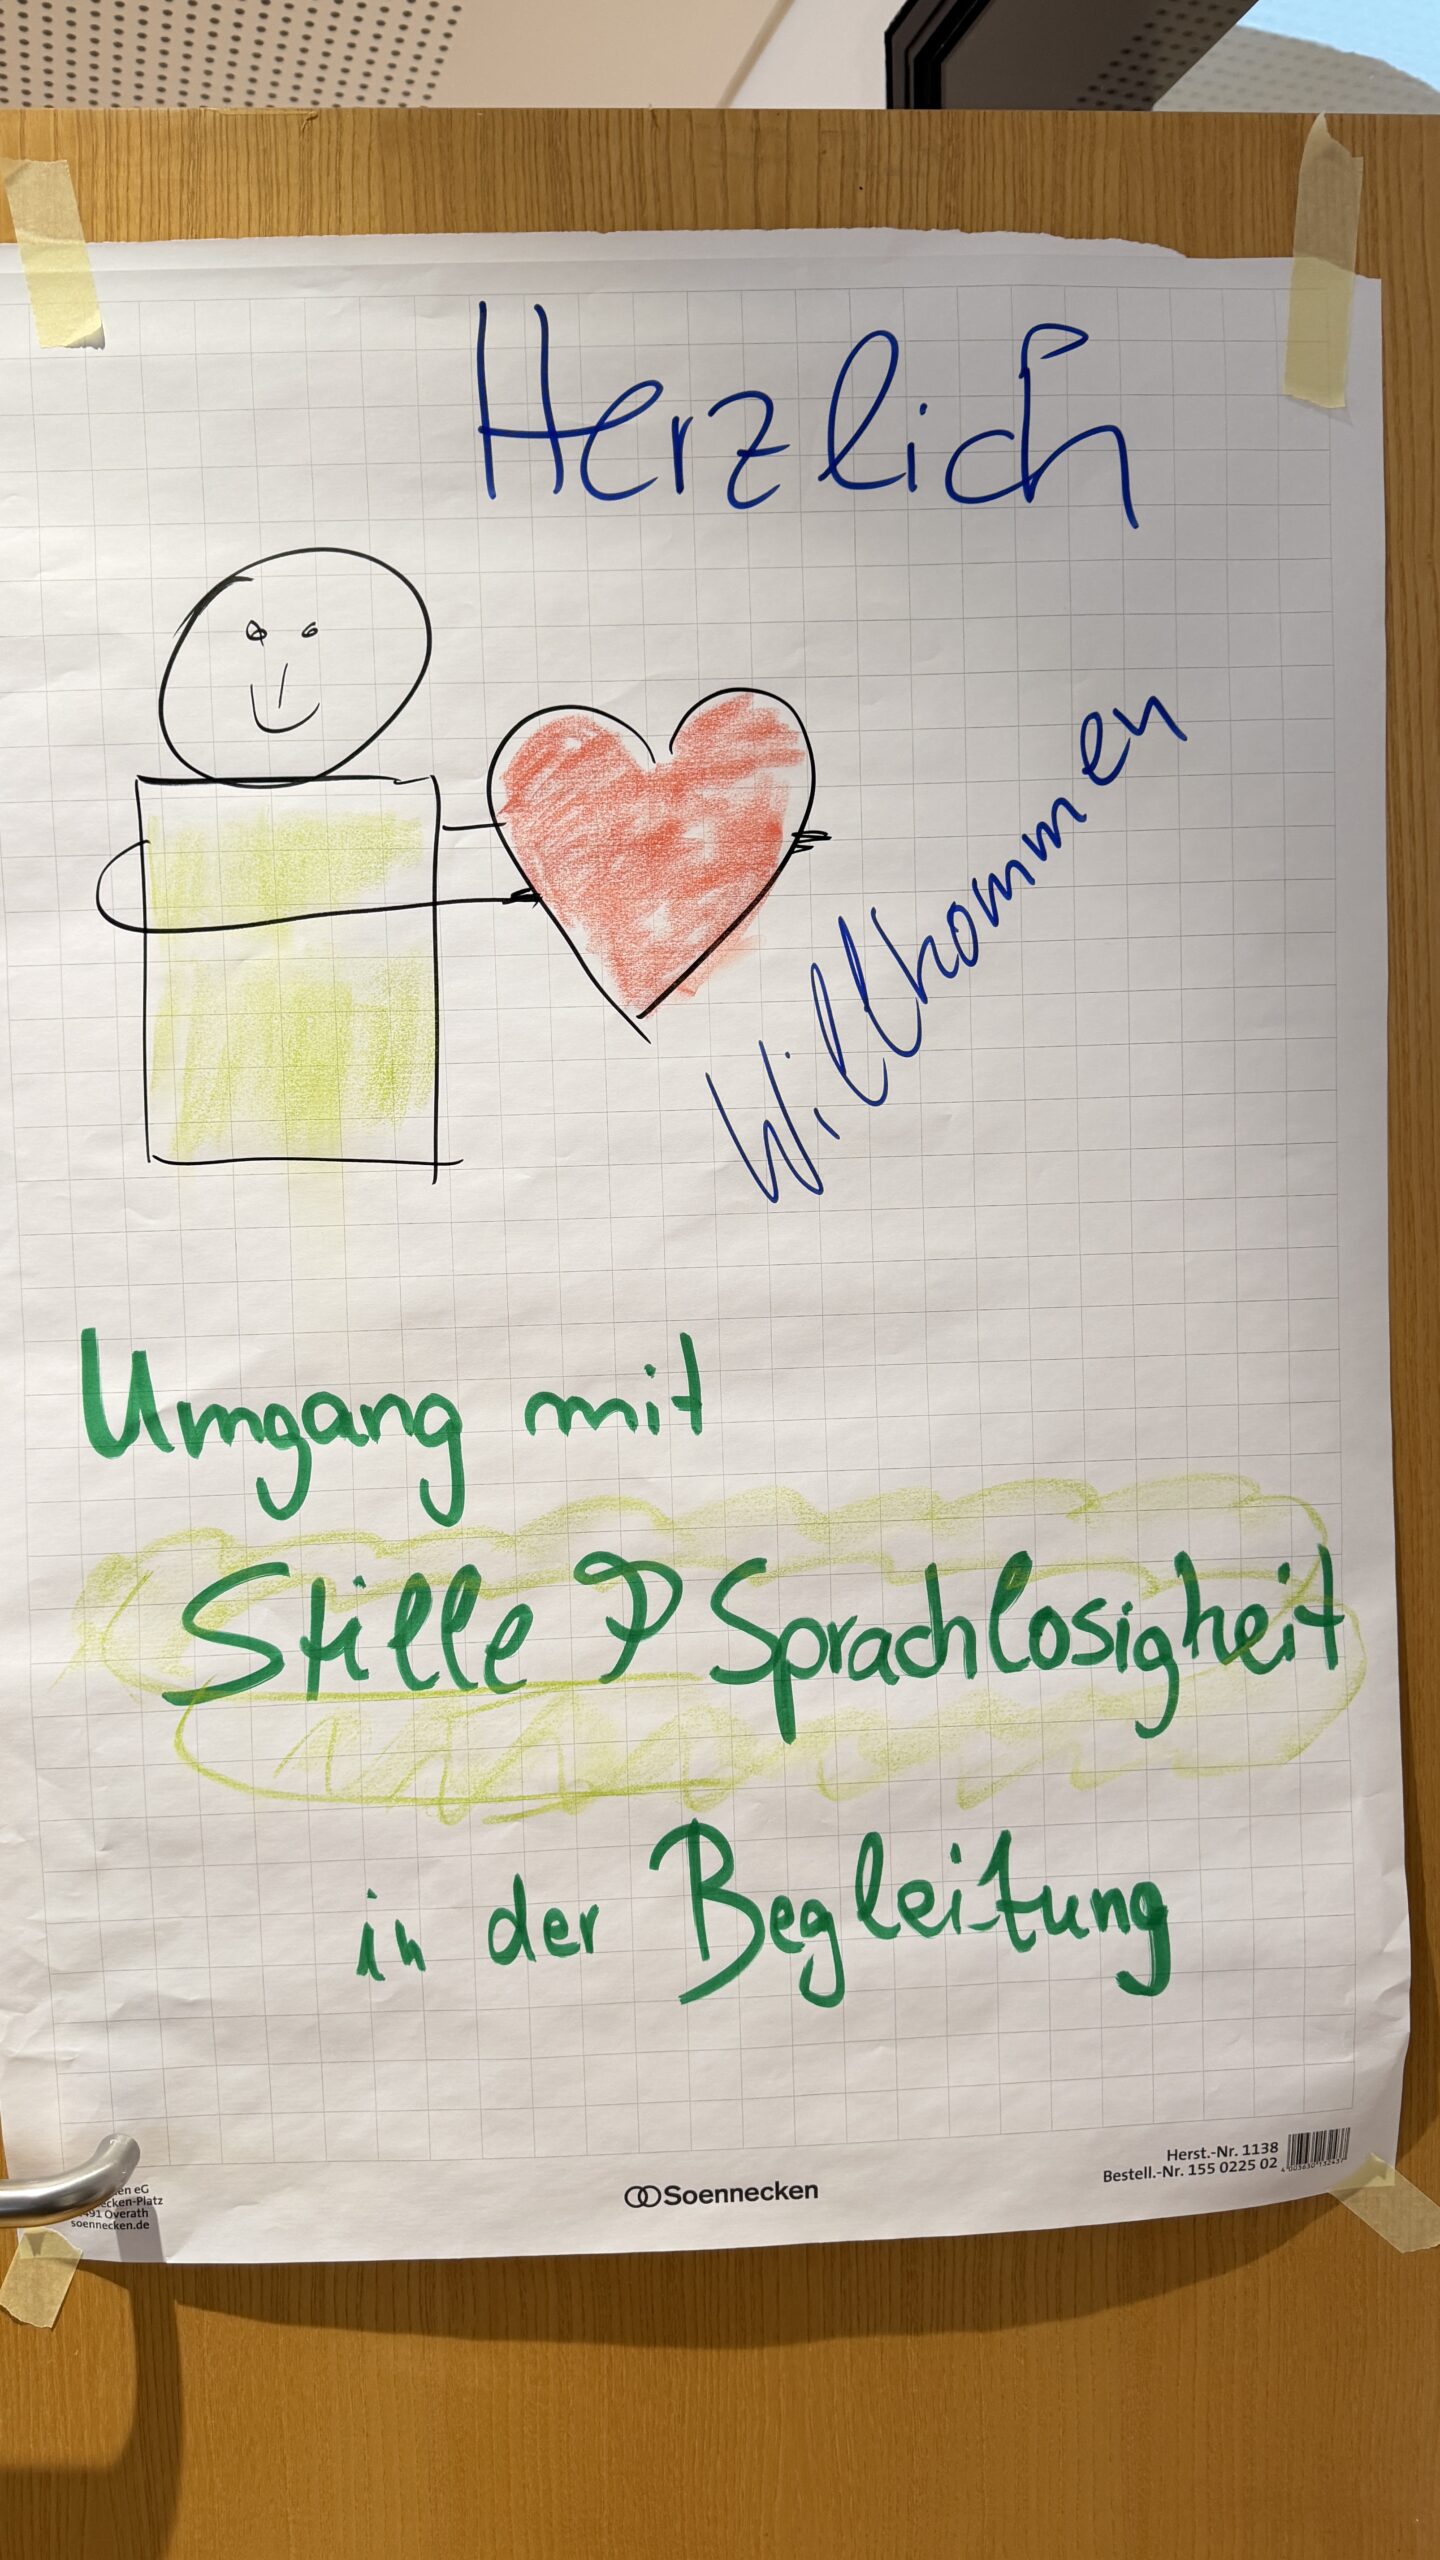 Herzlich
Willkommen
Umgang mit
Stille & Sprachlosigkeit
in der Begleitung
Herst.-Nr. 1138
Bestell.-Nr. 155 0225 02
Soennecken
en eG
ecken-Platz
491 Overath
soennecken.de